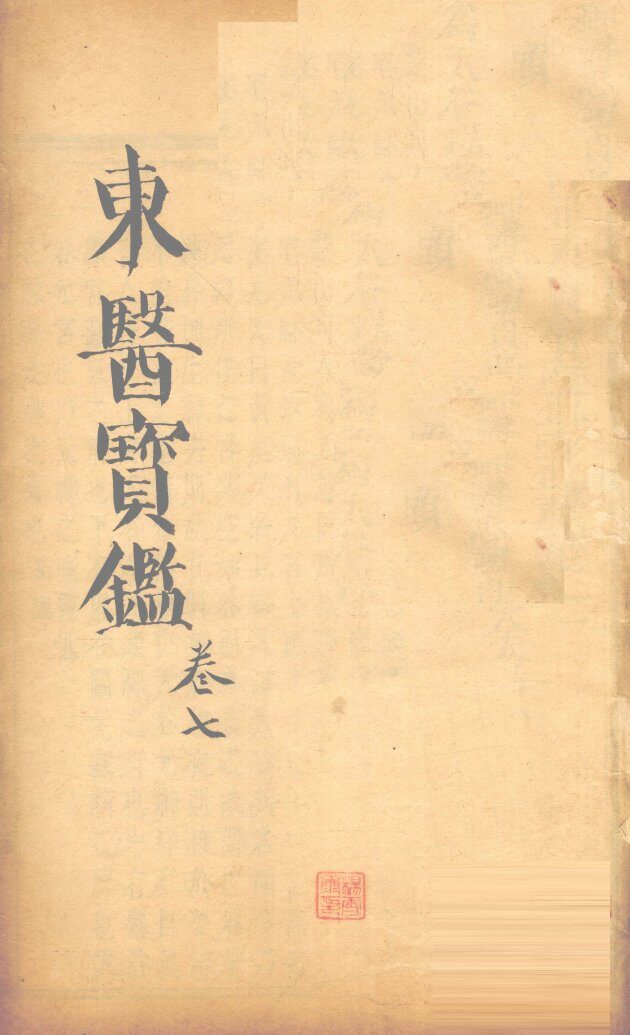 東醫寶鑑
卷七